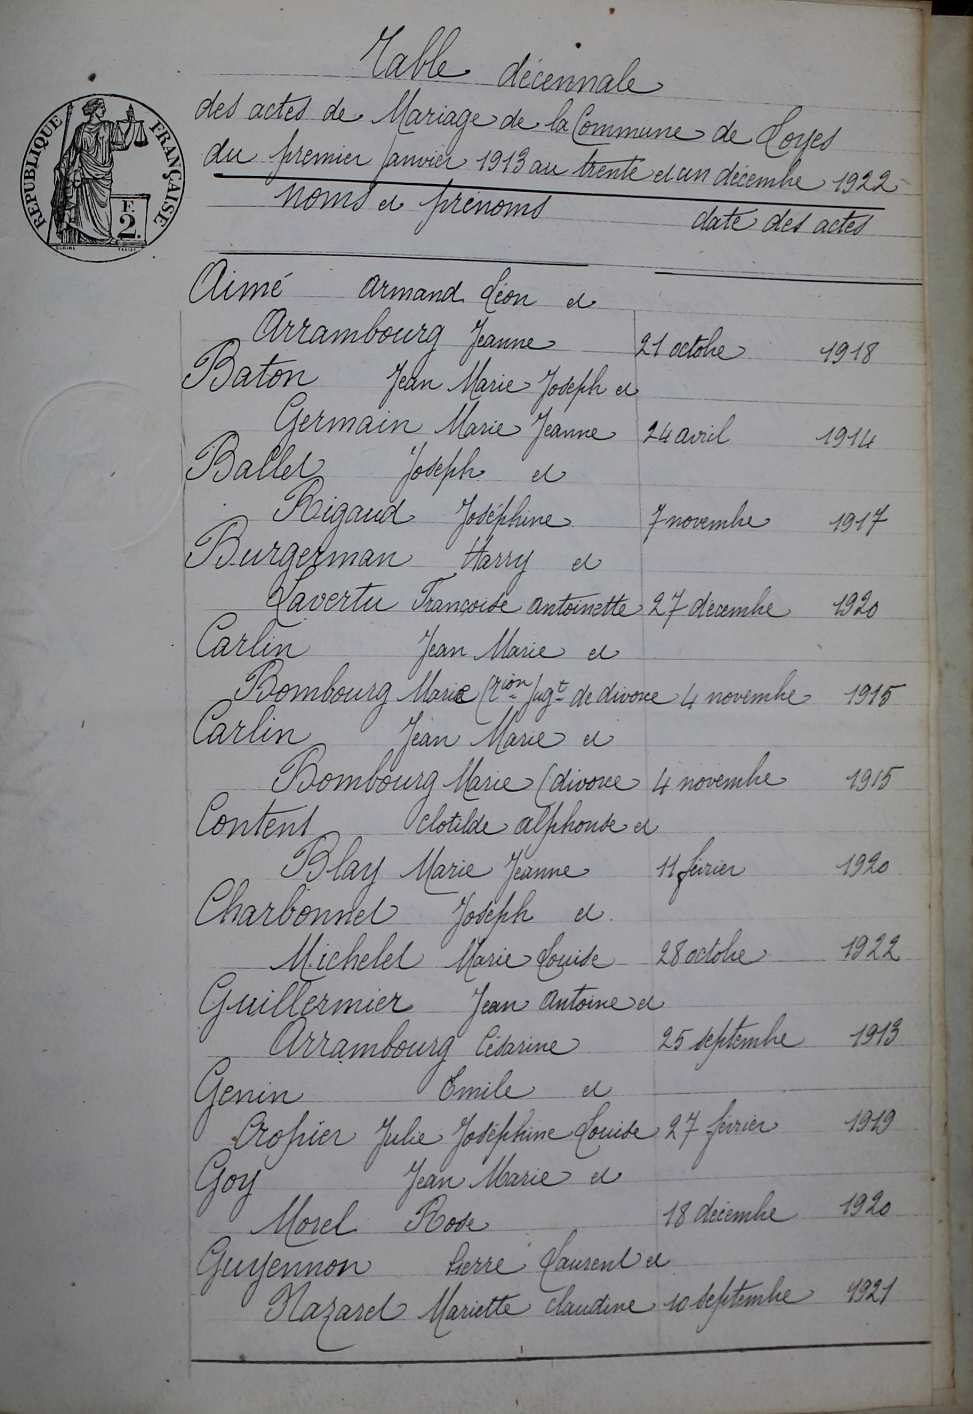 Table décennale
des actes de Mariage de la Commune de Loyes
du premier janvier 1913 au trente et un décembre 1922
RÉPUBLIQUE FRANÇAISE
F
2.
noms et prénoms date des actes
Aimé Armand Léon et
Arrambourg Jeanne 21 octobre 1918
Baton Jean Marie Joseph et
Germain Marie Jeanne 24 avril 1914
Ballet Joseph et
Rigaud Joséphine 7 novembre 1917
Burgerman Harry et
Lavertu Françoise Antoinette 27 décembre 1920
Carlin Jean Marie et
Bombourg Marie (tion jugt de divorce 4 novembre 1915
Carlin Jean Marie et
Bombourg Marie (divorce 4 novembre 1915
Content Clotilde Alphonse et
Blay Marie Jeanne 11 février 1920
Charbonnet Joseph et
Michelet Marie Louise 28 octobre 1922
Guillermier Jean Antoine et
Arrambourg Césarine 25 septembre 1913
Genin Emile et
Cropier Julie Joséphine Louise 27 février 1919
Goy Jean Marie et
Morel Rose 18 décembre 1920
Guyennon Pierre Laurent et
Nazaret Mariette Claudine 10 septembre 1921